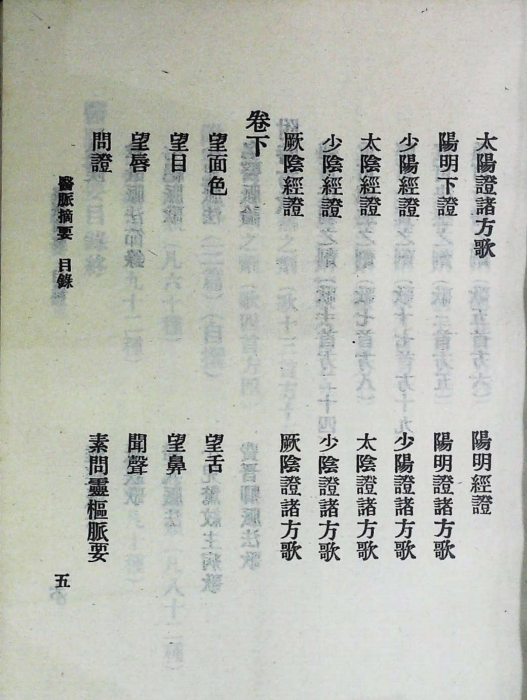 太陽證諸方歌　陽明經證
陽明下證　陽明證諸方歌
少陽經證　少陽證諸方歌
太陰經證　太陰證諸方歌
少陰經證　少陰證諸方歌
厥陰經證　厥陰證諸方歌
卷下
望面色　望舌
望目　望鼻
望唇　聞聲
問證　素問靈樞脈要
醫脈摘要　目錄　五